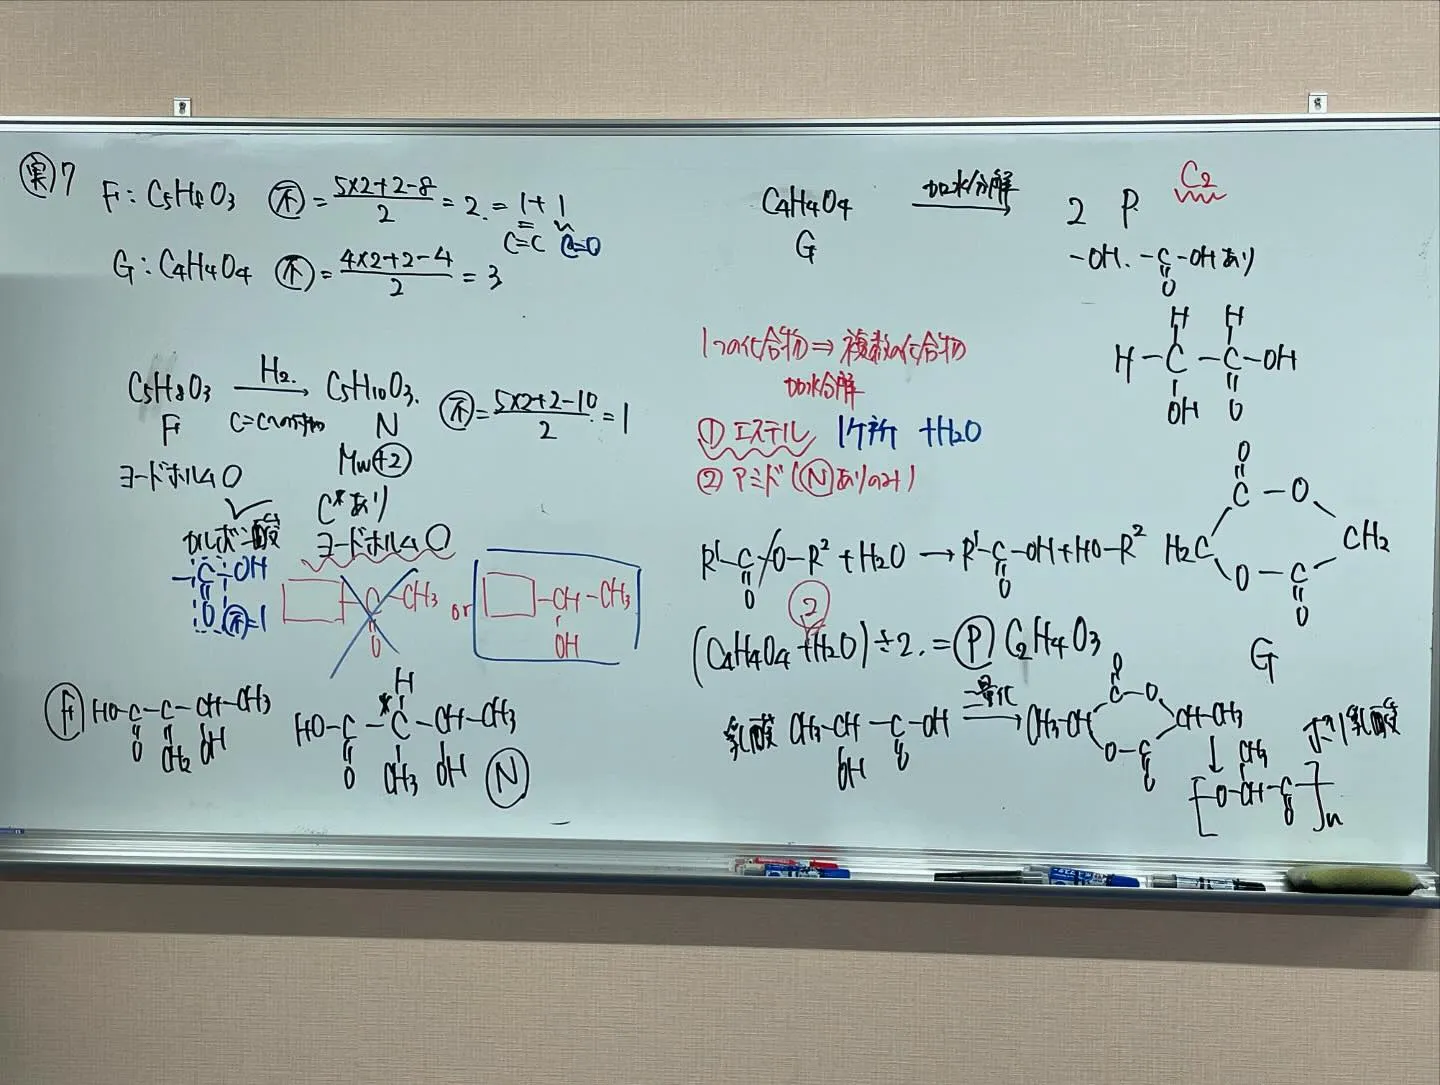 実7
F: C5H8O3 不 = (5×2+2-8)/2 = 2. = 1+1
C=C C=O
G: C4H4O4 不 = (4×2+2-4)/2 = 3
C5H8O3 H2. → C5H10O3. 不 = (5×2+2-10)/2 = 1
F C=C N
ヨードホルム○ Mw+2
C*あり
カルボン酸 ヨードホルム○
-C-OH
O 不=1
□-C-CH3 or □-CH-CH3
O OH
F HO-C-C-CH-CH3
O CH2 OH
H
HO-C-*C-CH-CH3
O CH3 OH N
C4H4O4 加水分解 → 2 P C2
G
-OH. -C-OHあり
O
H H
H-C-C-OH
OH O
1つの化合物⇒複数の化合物
加水分解
① エステル 1ヶ所 +H2O
② アミド(Nありのみ)
R1-C-O-R2+H2O→R1-C-OH+HO-R2
O O
2
(C4H4O4+H2O)÷2.=P C2H4O3
O
C-O
H2C CH2
O-C
O
G
乳酸 CH3-CH-C-OH 二量化 → CH3-CH C-O CH-CH3
OH O O O-C O
ポリ乳酸
CH3
[O-CH-C]n
O